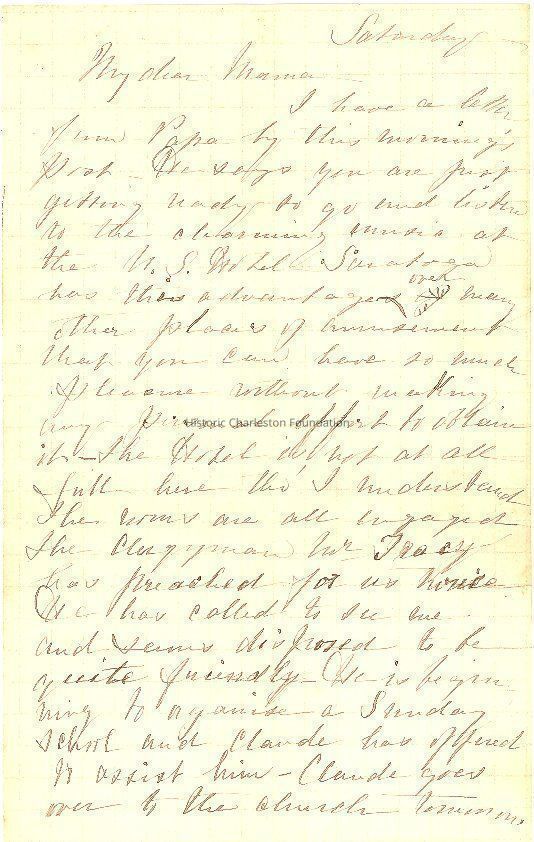 Saturday
My dear Mama
I have a letter
from Papa by this morning's
post - He says you are just
getting ready to go and listen
to the charming music at
the U. S. Hotel. Saratoga
has this advantage over many
other places of amusement
that you can have so much
pleasure without making
any effort to obtain
it - The Hotel is not at all
full here tho' I understand
the rooms are all engaged
The Clergyman Mr Tracy
has preached for us twice
He has called to see me
and seems disposed to be
quite friendly - He is begin
ning to organise a Sunday
school and Claude has offered
to assist him - Claude goes
over to the church tomorrow
Historic Charleston Foundation